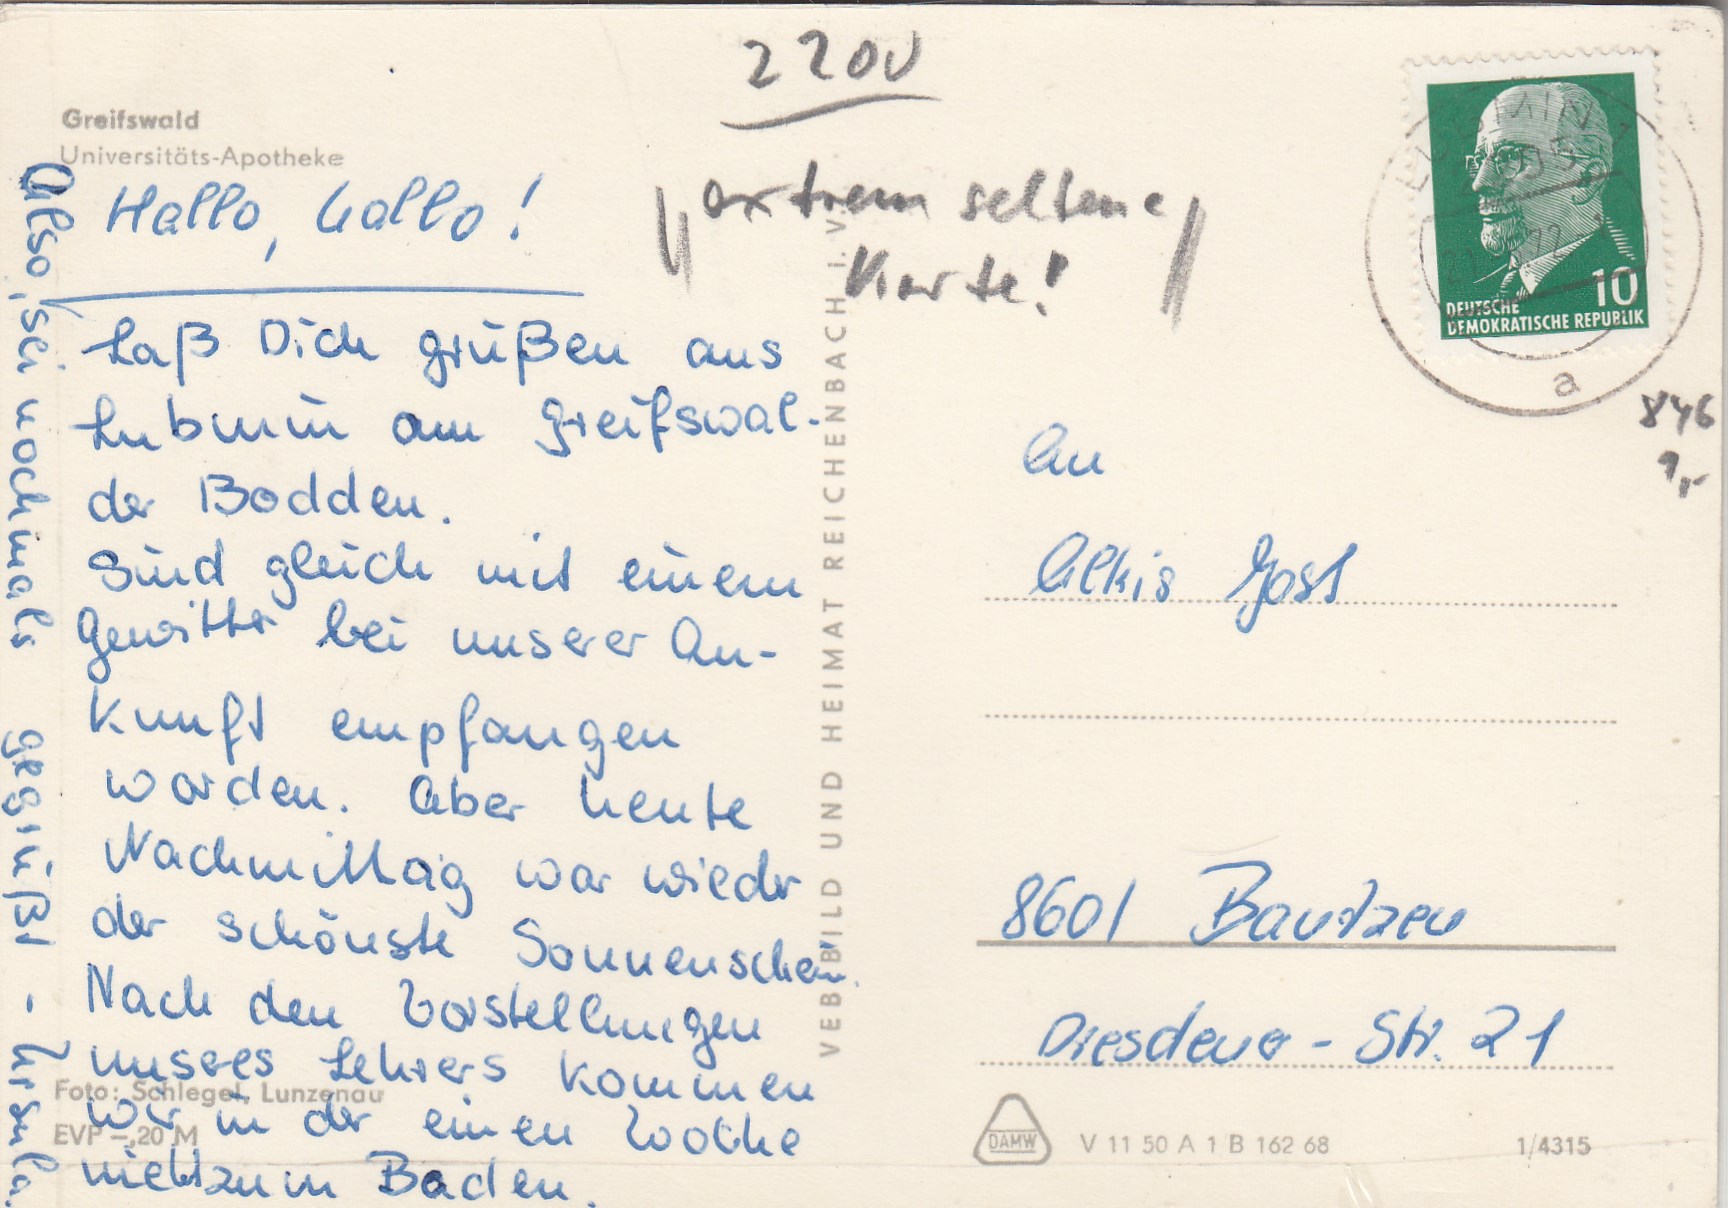 Greifswald
Universitäts-Apotheke
2200
"extrem seltene
Karte!"
Hallo, Hallo!
Laß Dich grüßen aus
Lubmin am Greifswal-
der Bodden.
Sind gleich mit einem
Gewitter bei unserer An-
kunft empfangen
worden. Aber heute
Nachmittag war wieder
der schönste Sonnenschein.
Nach den Vorstellungen
unseres Lehrers kommen
wir in der einen Woche
nicht zum Baden.
Also, sei nochmals gegrüßt - Ursula.
Foto: Schlegel, Lunzenau
EVP -,20 M
VEB BILD UND HEIMAT REICHENBACH I. V.
LUBMIN 1
2205
72
a
10
DEUTSCHE
DEMOKRATISCHE REPUBLIK
846
1,-
An
Alkis Jost
8601 Bautzen
Dresdener-Str. 21
DAMW
V 11 50 A 1 B 162 68
1/4315